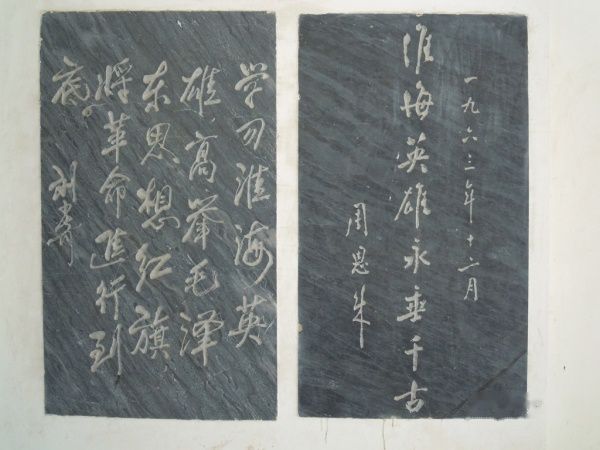 一九六三年十二月
淮海英雄永垂千古
周恩来
学习淮海英
雄高举毛泽
东思想红旗
将革命進行到
底
刘少奇